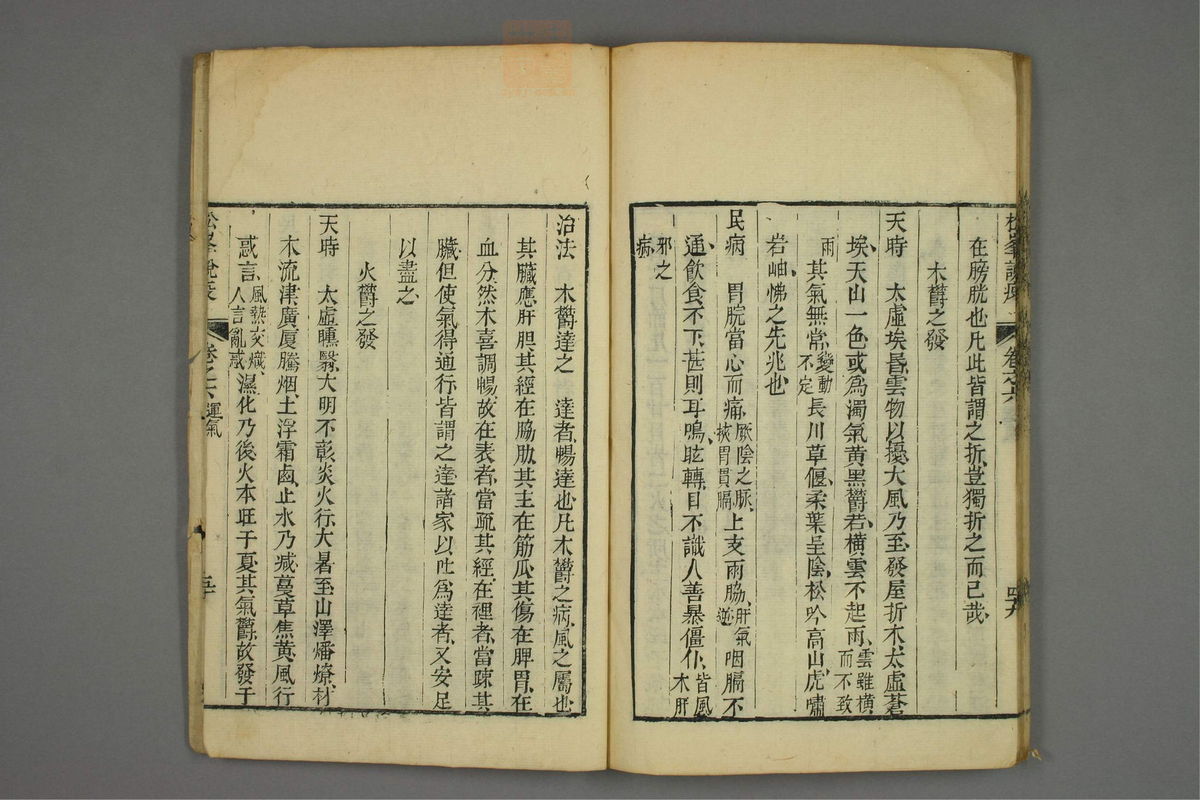 松峯說疫
卷之六
四九
在膀胱也凡此皆謂之折豈獨折之而已哉
木鬱之發
天時　太虛埃昬雲物以擾大風乃至發屋折木太虛蒼
埃天山一色或爲濁氣黄黑鬱若橫雲不起雨雲雖橫而不致
雨其氣無常變動不定長川草偃柔葉呈陰松吟高山虎嘯
岩岫怫之先兆也
民病　胃脘當心而痛厥陰之脈挾胃貫膈上支兩脇肝氣逆咽膈不
通飲食不下甚則耳鳴眩轉目不識人善暴僵仆皆風木肝
邪之病
治法　木鬱達之　達者暢達也凡木鬱之病風之屬也
其臟應肝胆其經在脇肋其主在筋瓜其傷在脾胃在
血分然木喜調暢故在表者當疏其經在裡者當疎其
臟但使氣得通行皆謂之達諸家以吐爲達者又安足
以盡之
火鬱之發
天時　太虛曛翳大明不彰炎火行大暑至山澤燔燎材
木流津廣厦騰烟土浮霜鹵止水乃减蔓草焦黄風行
惑言風熱交熾人言亂惑濕化乃後火本旺于夏其氣鬱故發于
松峯說疫
卷之六
運氣
五十